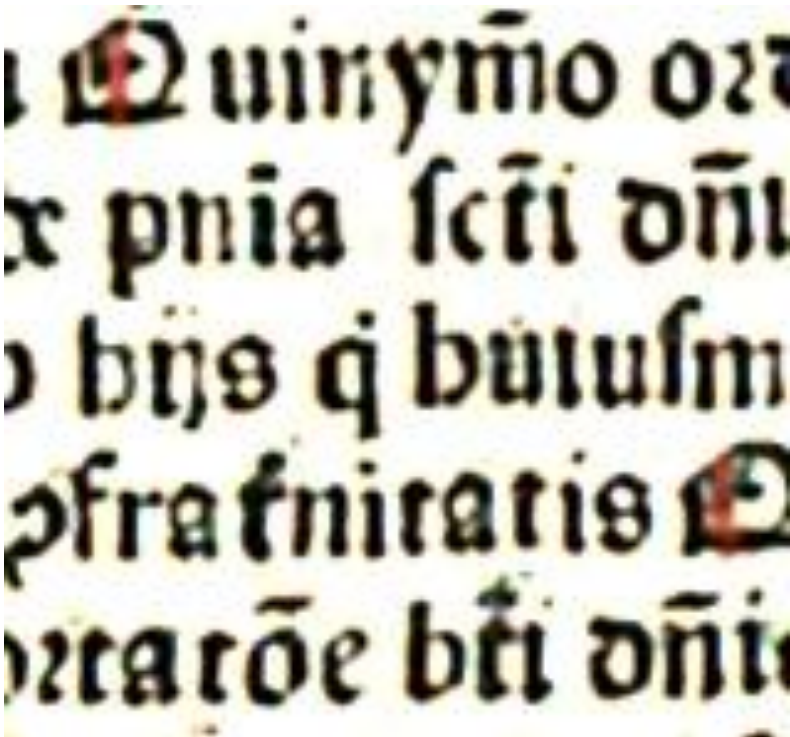 Quinym̄o ord
x pnīa ſct̄i dn̄i
hijs q̇ huiuſm
ꝯfrat̄nitatis Q
ortatōe bt̄i dn̄i